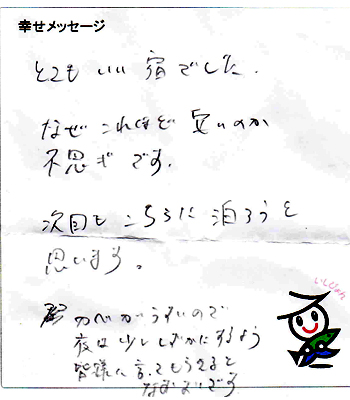 幸せメッセージ
とてもいい宿でした.
なぜこれほど安いのか
不思ギです.
次回もこちらに泊ろうと
思います.
カベがうすいので
夜は少ししずかにするよう
皆様に言ってもらえると
なおよいです